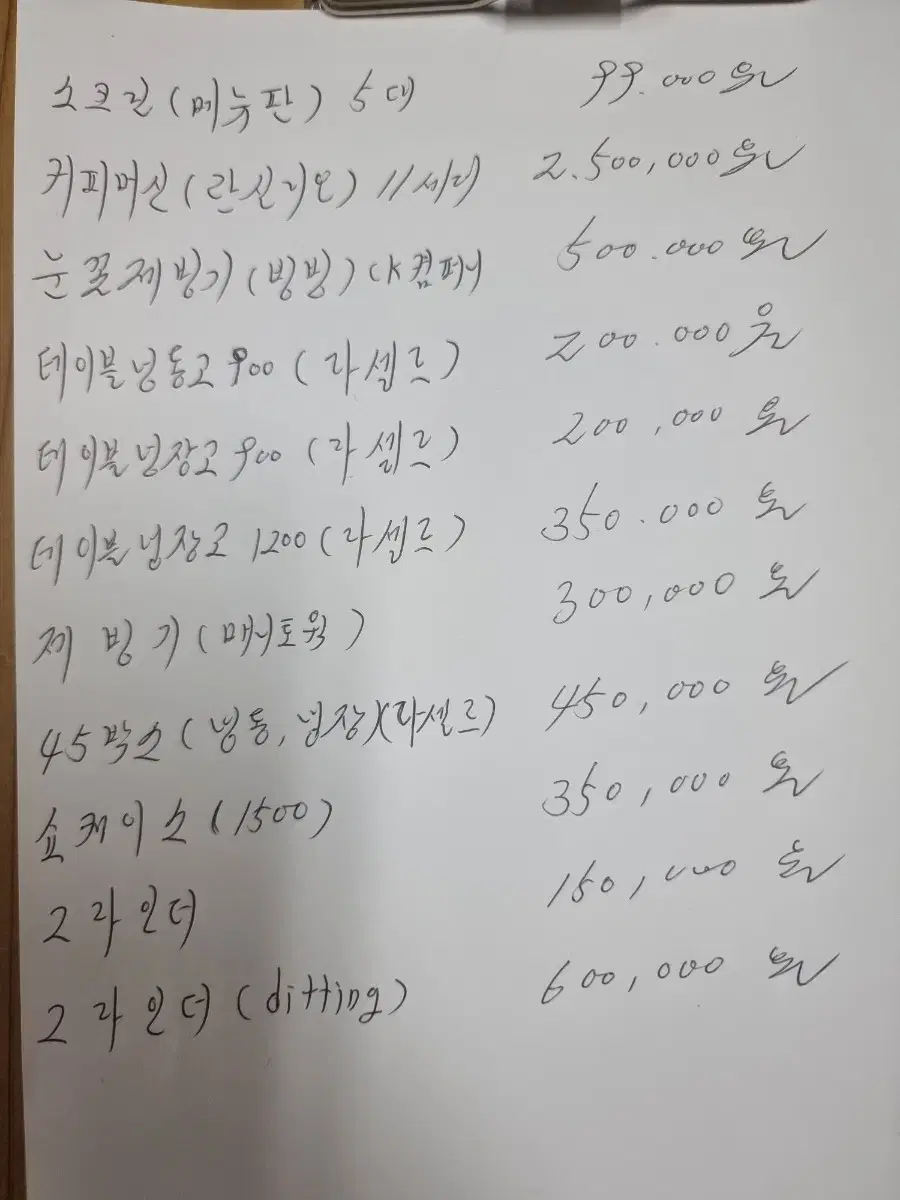 스크린(메뉴판) 5대 99.000원
커피머신(란실리오) 11세리 2.500,000원
눈꽃제빙기(빙빙) CK컴퍼니 500.000원
테이블냉동고 900 (라셀르) 200.000원
테이블냉장고 900 (라셀르) 200,000원
테이블냉장고 1200 (라셀르) 350.000원
제빙기(매니토웍) 300,000원
45박스(냉동,냉장)(라셀르) 450,000원
쇼케이스(1500) 350,000원
그라인더 150,000원
그라인더(ditting) 600,000원